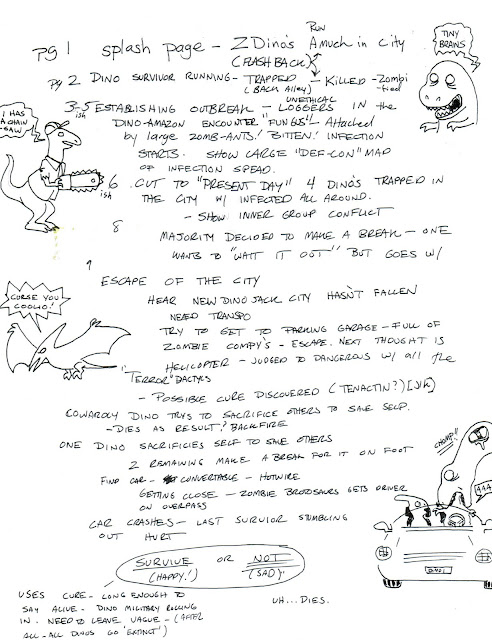 pg 1 splash page - Z Dino's Amuch in city
RUN
(FLASHBACK)
TINY BRAINS
pg 2 DINO SURVIVOR RUNNING - TRAPPED - KILLED - Zombi-
(BACK Alley) fied
I HAS A CHAIN SAW
3-5ish ESTABLISHING OUTBREAK - LOGGERS IN the
UNETHICAL
DINO-AMAZON ENCOUNTER "FUNGUS". Attacked
by large ZOMB-ANTS! BITTEN! INFECTION
STARTS. SHOW LARGE "DEF-CON" MAP
OF INFECTION SPREAD.
6ish CUT TO "PRESENT DAY" 4 DINO'S TRAPPED IN
THE CITY W/ INFECTED ALL AROUND.
- SHOW INNER GROUP CONFLICT
8 MAJORITY DECIDED TO MAKE A BREAK - ONE
WANTS TO "WAIT IT OUT" BUT GOES W/
9
ESCAPE OF THE CITY
CURSE YOU COOLIO!
HEAR NEW DINOJACK CITY HASN'T FALLEN
NEED TRANSPO
TRY TO GET TO PARKING GARAGE - FULL OF
ZOMBIE COMPY'S - ESCAPE. NEXT THOUGHT IS
HELICOPTER - JUDGED TO DANGEROUS W/ all the
"TERROR"DACTYLS
- POSSIBLE CURE DISCOVERED (TENACTIN?) [J/K]
COWARDLY DINO TRYS TO SACRIFICE OTHERS TO SAVE SELF.
- DIES AS RESULT? BACKFIRE
ONE DINO SACRIFICIES SELF TO SAVE OTHERS
CHOMP!
2 REMAINING MAKE A BREAK FOR IT ON FOOT
FIND CAR - CONVERTABLE - HOTWIRE
GETTING CLOSE - ZOMBIE BROTOSAURS GETS DRIVER
ON OVERPASS
CAR CRASHES - LAST SURVIOR STUMBLING
OUT HURT
SURVIVE OR NOT
(HAPPY!) (SAD).
DINO1
USES CURE - LONG ENOUGH TO
SAY ALIVE - DINO MILITARY ROLLING
IN. NEED TO LEAVE VAGUE - (AFTER
ALL - ALL DINOS GO "EXTINCT")
UH... DIES.